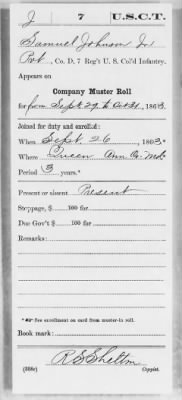 J 7 U.S.C.T.
Samuel Johnson Jr.
Pvt, Co. D, 7 Reg't U. S. Col'd Infantry.
Appears on
Company Muster Roll
for from Sept. 29 to Oct 31, 1863.
Joined for duty and enrolled:
When Sept. 26, 1863*
Where Queen Ann Co. Md.
Period 3 years.*
Present or absent Present
Stoppage, $ 100 for
Due Gov't $ 100 for
Remarks:
*See enrollment on card from muster-in roll.
Book mark:
R S Shelton
(358c) Copyist.